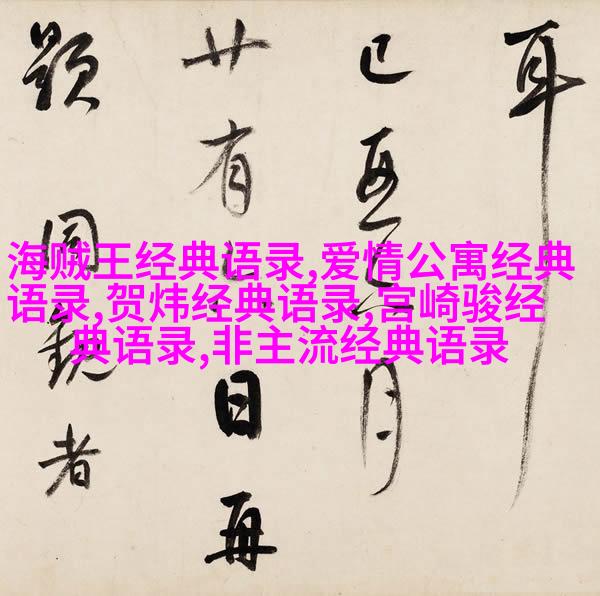 海贼王经典语录,爱情公寓经典
语录,贺炜经典语录,宫崎骏经
典语录,非主流经典语录
耳
己亥月
廿有日再
題同觀者